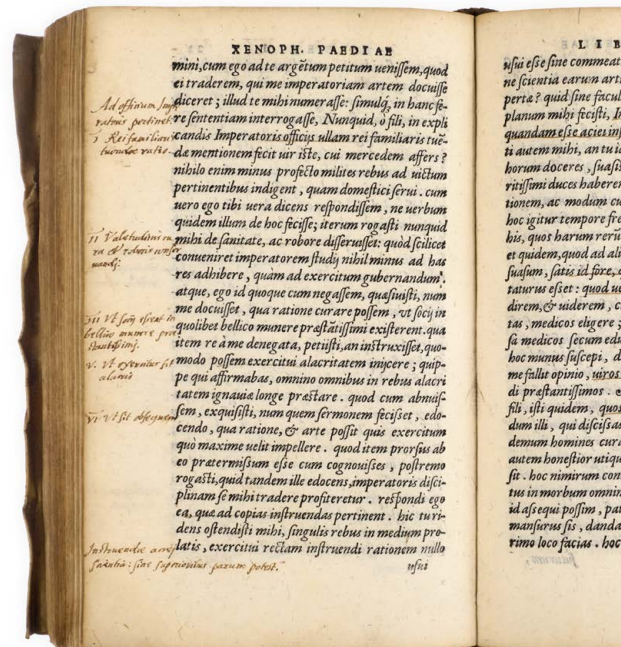 XENOPH. PAEDIAE
mini, cum ego ad te argētum petitum uenissem, quod
ei traderem, qui me imperatoriam artem docuisse
diceret ; illud te mihi numerasse: simulq́, in hanc fe-
re sententiam interrogasse, Nunquid, o fili, in expli
candis Imperatoris officijs ullam rei familiaris tuē-
dæ mentionem fecit uir iste, cui mercedem affers ?
nihilo enim minus profecto milites rebus ad uictum
pertinentibus indigent, quam domestici serui. cum
uero ego tibi uera dicens respondissem, ne uerbum
quidem illum de hoc fecisse; iterum rogasti nunquid
mihi de sanitate, ac robore disseruisset: quòd scilicet
conueniret imperatorem studij nihil minus ad has
res adhibere, quàm ad exercitum gubernandum.
atque, ego id quoque cum negassem, quæsiuisti, num
me docuisset, qua ratione curare possem, vt socij in
quolibet bellico munere præstātissimi existerent. qua
item re à me denegata, petijsti, an instruxisset, quo-
modo possem exercitui alacritatem inijcere ; quip-
pe qui affirmabas, omnino omnibus in rebus alacri
tatem ignauiæ longe præstare. quod cum abnuis-
sem, exquisisti, num quem sermonem fecisset, edo-
cendo, qua ratione, & arte possit quis exercitum
quò maxime uelit impellere. quod item prorsus ab
eo prætermissum esse cum cognouisses, postremo
rogasti, quid tandem ille edocens, imperatoris disci-
plinam se mihi tradere profiteretur. respondi ego
ea, quæ ad copias instruendas pertinent. hic tu ri-
dens ostendisti mihi, singulis rebus in medium pro-
latis, exercitui rectam instruendi rationem nullo
usui
Ad officium Impe
ratoris pertinet
I Rei familiaris
tuendæ ratio.
II Valetudinis cu
ra & roboris conser
uandi.
III Vt socij sient in
bellico munere præ
stantissimi.
V. Vt exercitus sit
alacris
VI Vt sit obsequens
Instruendæ aciei
scientia: sine superioribus parum potest.
LIB
usui esse sine commeat
ne scientia earum arti
pertæ? quid sine facul
planum mihi fecisti, I
quandam esse aciei in
ti autem mihi, an tu id
horum doceres, suasis
ritissimi duces haberen
tionem, ac modum cu
hoc igitur tempore fre
his, quos harum rerū
et quidem, quod ad ali
suasum, satis id fore, c
taturus esset: quod ue
direm, & uiderem, c
tas, medicos eligere ;
sa medicos secum edu
hoc munus suscepi, d
me fallit opinio, uiros
di præstantissimos.
fili, isti quidem, quos
dum illi, qui discissas
demum homines cura
autem honestior utiqu
sit. hoc nimirum con
tus in morbum omnin
id assequi possim, pat
mansurus sis, danda
rimo loco facias. hoc